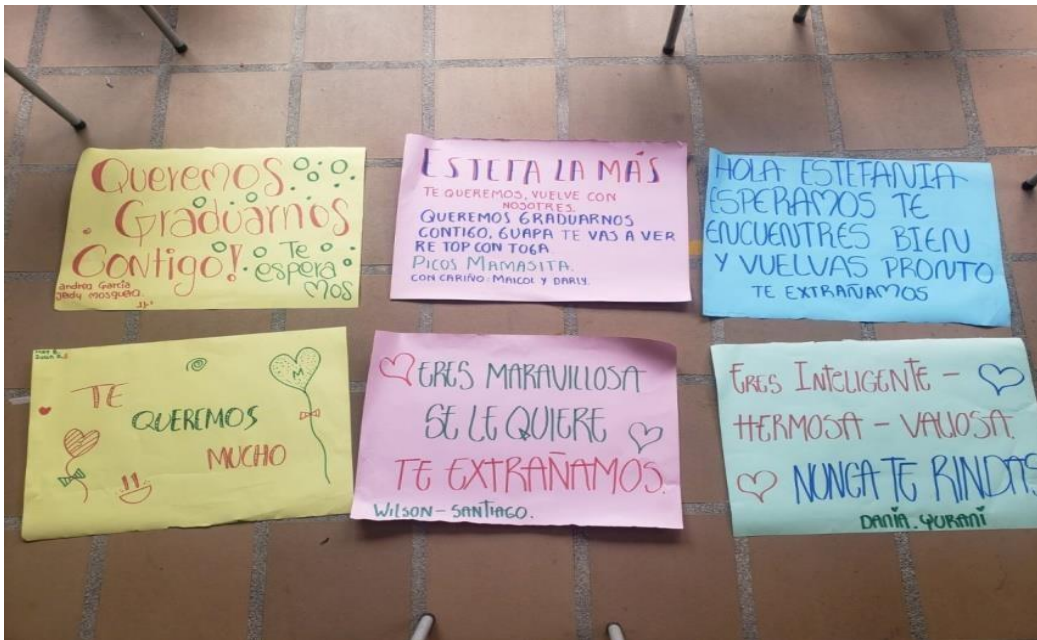 Queremos
Graduarnos
Contigo!
Te
espera
mos
andres García
Jeidy mosquera.
ESTEFA LA MÁS
TE QUEREMOS, VUELVE CON
NOSOTRES.
QUEREMOS GRADUARNOS
CONTIGO, GUAPA TE VAS A VER
RE TOP CON TOGA
PICOS MAMASITA.
CON CARIÑO: MAICOL Y DARLY.
HOLA ESTEFANIA
ESPERAMOS TE
ENCUENTRES BIEN
Y VUELVAS PRONTO
TE EXTRAÑAMOS
TE
QUEREMOS
MUCHO
M
ERES MARAVILLOSA
SE LE QUIERE
TE EXTRAÑAMOS.
WILSON - SANTIAGO.
ERES INTELIGENTE -
HERMOSA - VALIOSA.
NUNCA TE RINDAS
DANIA. YURANI